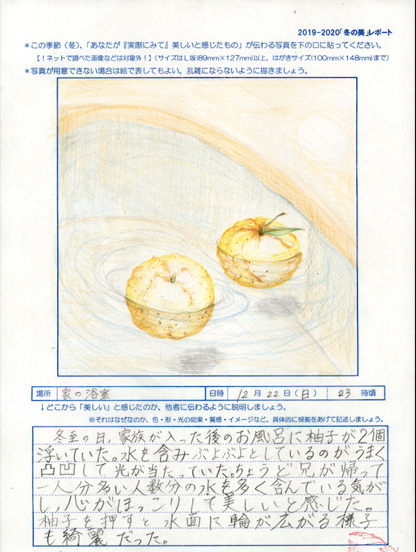 2019-2020「冬の美」レポート
*この季節(冬)、「あなたが『実際にみて』美しいと感じたもの」が伝わる写真を下の□に貼ってください。
【!ネットで調べた画像などは対象外!】(サイズはL版(89mm×127mm)以上、はがきサイズ(100mm×148mm)まで)
*写真が用意できない場合は絵で表してもよい。乱雑にならないように描きましょう。
場所 家の浴室 日時 12月22日(日) 23時頃
↓どこから「美しい」と感じたのか、他者に伝わるように説明しましょう。
※それはなぜなのか、色・形・光の効果・質感・イメージなど、具体的に根拠をあげて記述しましょう。
冬至の日、家族が入った後のお風呂に柚子が2個
浮いていた。水を含みぶよぶよとしているのがうまく
凸凹して光が当たっていた。ちょうど兄が帰って
一人分多い人数分の水を多く含んでいる気が
し、心がほっこりして美しいと感じた。
柚子を押すと水面に輪が広がる様子
も綺麗だった。